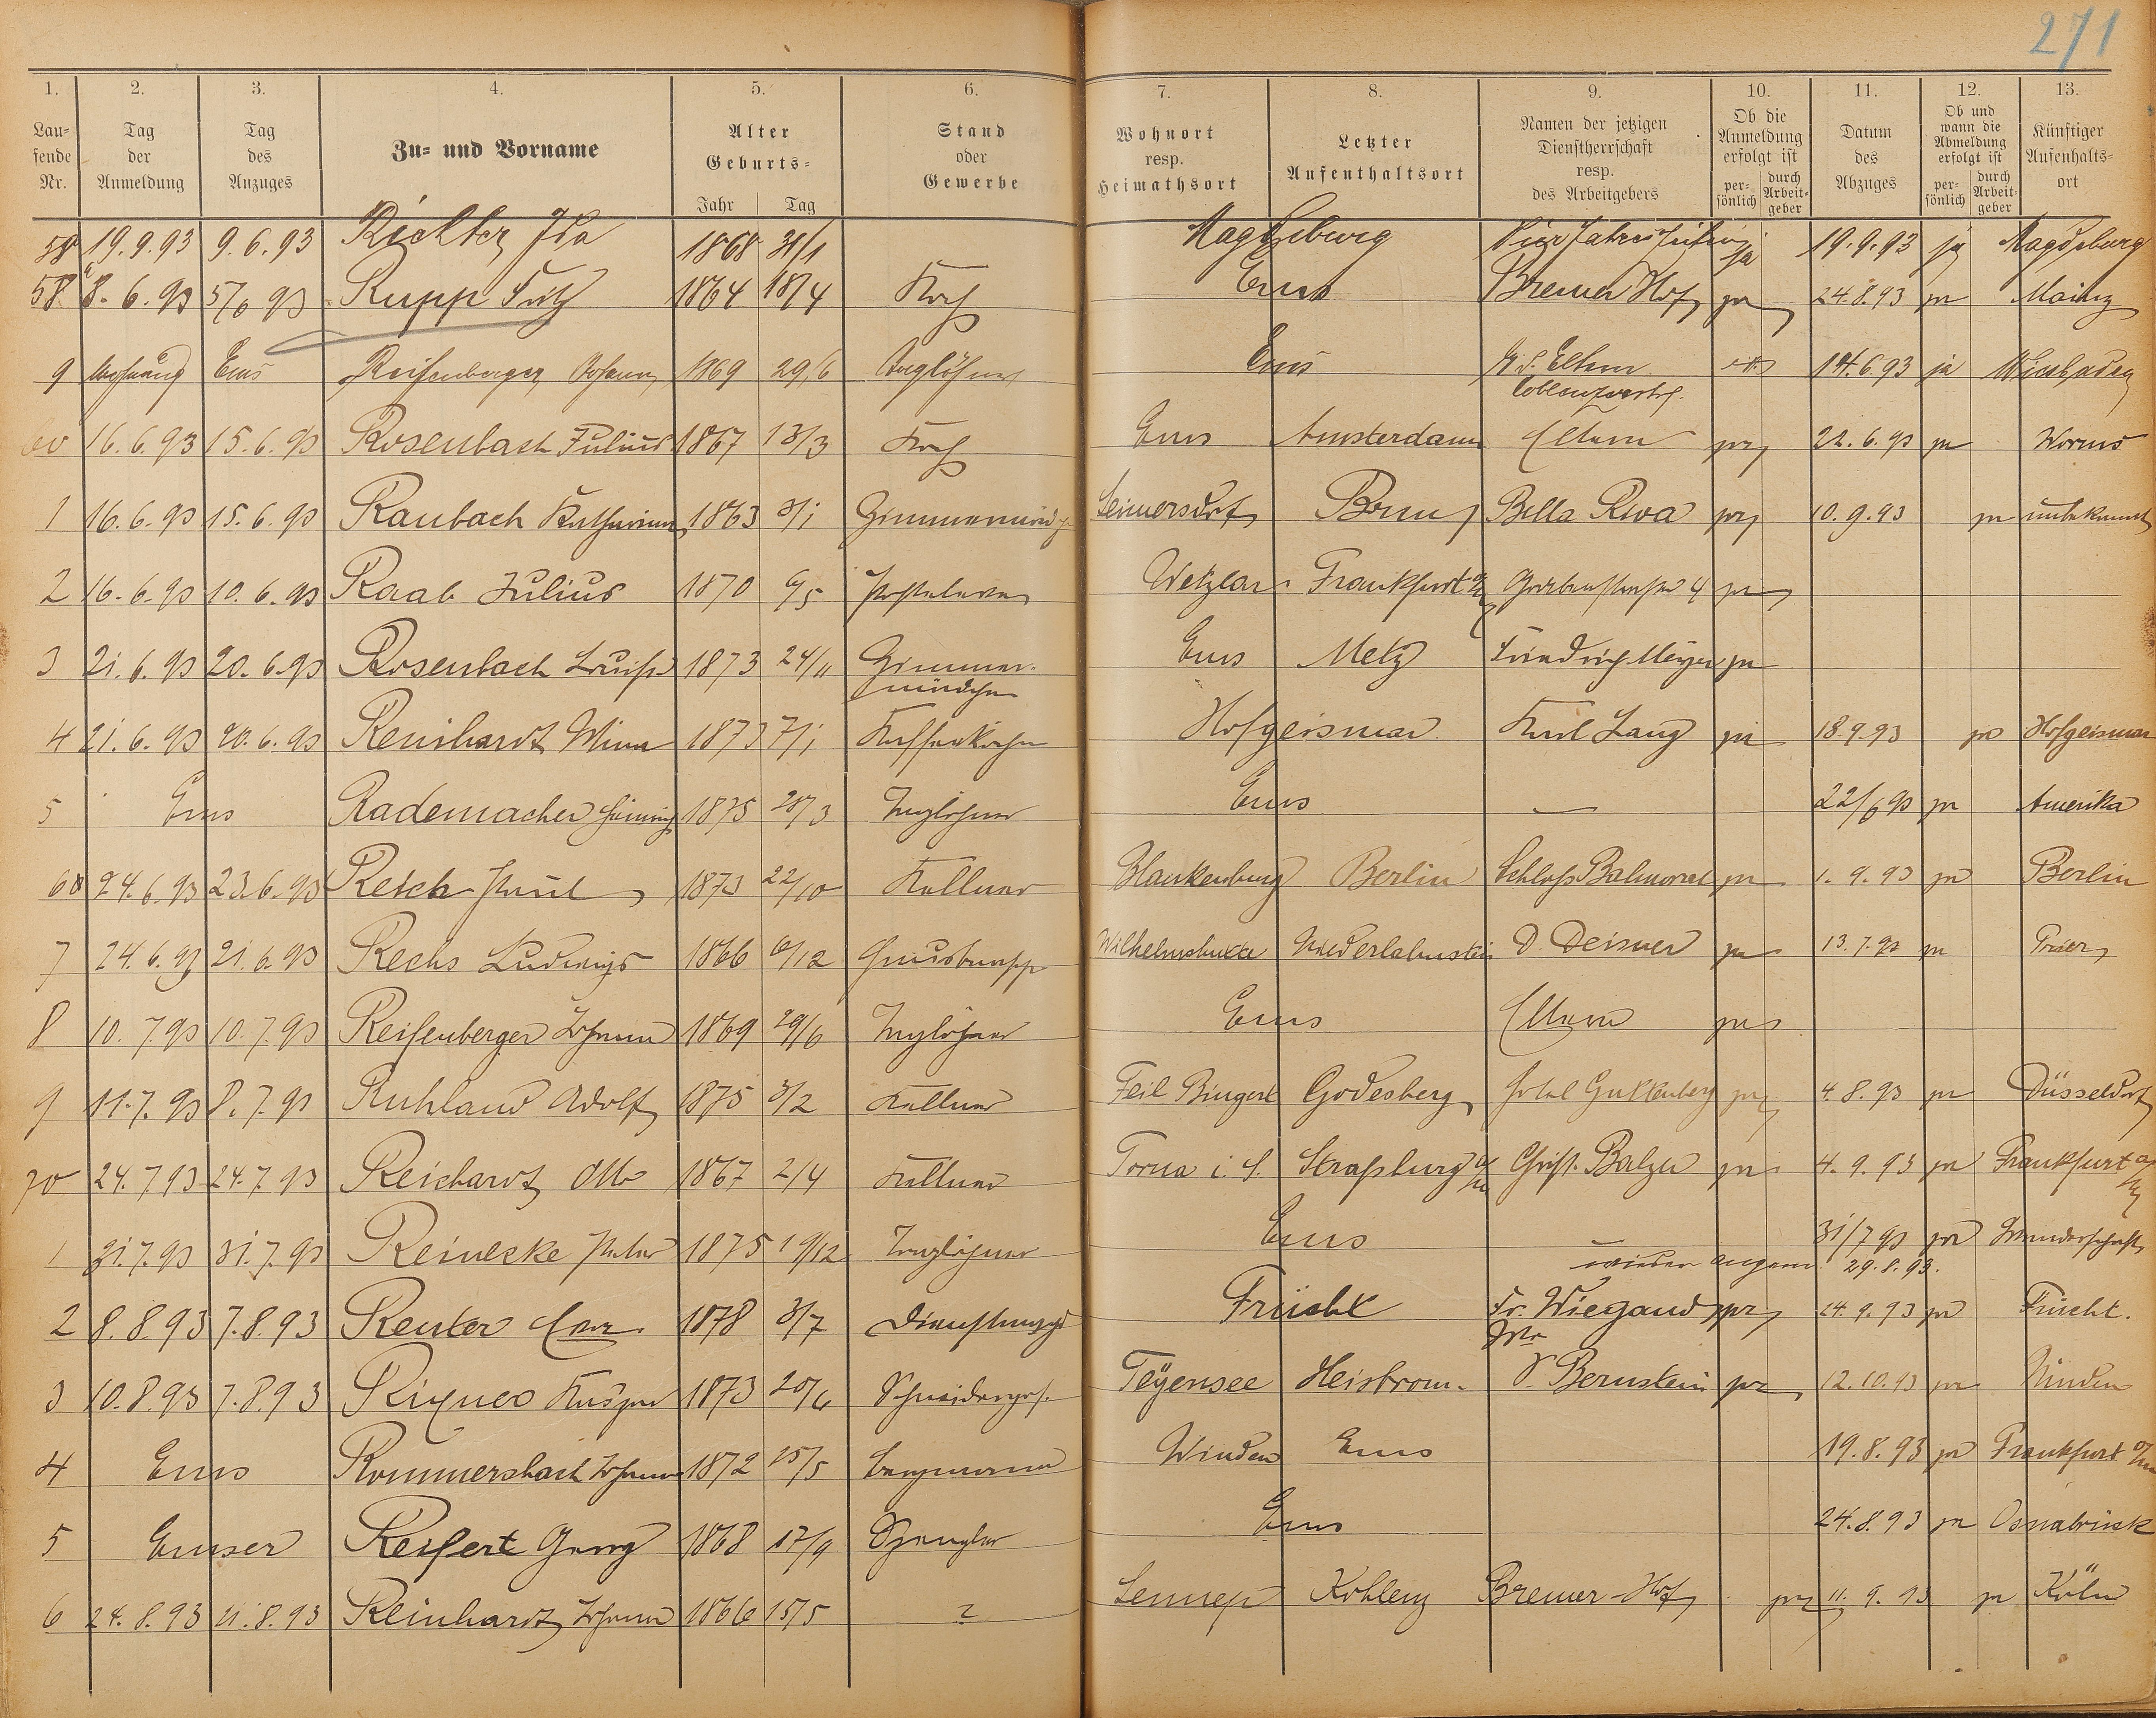 271
1. 2. 3. 4. 5. 6. 7. 8. 9. 10. 11. 12. 13.
Lau-
fende
Nr.
Tag
der
Anmeldung
Tag
des
Anzuges
Zu- und Vorname
Alter
Geburts-
Jahr Tag
Stand
oder
Gewerbe
Wohnort
resp.
Heimathsort
Letzter
Aufenthaltsort
Namen der jetzigen
Dienstherrschaft
resp.
des Arbeitgebers
Ob die
Anmeldung
erfolgt ist
per-
sönlich
durch
Arbeit-
geber
Datum
des
Abzuges
Ob und
wann die
Abmeldung
erfolgt ist
per-
sönlich
durch
Arbeit-
geber
Künftiger
Aufenhalts-
ort
58 19.9.93 9.6.93 Richter Ida 1868 31/1 Magdeburg ja 19.9.93 ja Magdeburg
58a 8.6.93 5/6 93 Rupp Fritz 1864 18/4 Koch Ems Bremer Hof ja 24.8.93 ja Mainz
9 Ems Reifenberger Johann 1869 29/6 Taglöhner Ems b. d. Eltern 14.6.93 ja Wiesbaden
Coblenzerstr.
60 16.6.93 15.6.93 Rosenbach Julius 1867 13/3 Koch Ems Amsterdam Eltern ja 22.6.93 ja Worms
1 16.6.93 15.6.93 Raubach Katharina 1863 3/1 Zimmermädch Leimersdorf Bonn Bella Riva ja 10.9.93 ja unbekannt
2 16.6.93 10.6.93 Raab Julius 1870 6/5 Posteleve Wetzlar Frankfurt a/M Grabenstraße 4 ja
3 21.6.93 20.6.93 Rosenbach Louise 1873 24/11 Zimmer- Ems Metz Friedrich Meyer ja
mädchen
4 21.6.93 20.6.93 Reinhardt Mina 1873 7/1 Kaffeeköchin Hofgeismar Karl Lang ja 18.9.93 ja Hofgeismar
5 Ems Rademacher Heinrich 1875 28/3 Taglöhner Ems — 22/6 93 ja Amerika
68 24.6.93 23.6.93 Reich Paul 1873 22/10 Kellner Blankenburg Berlin Schloß Balmoral ja 1.9.93 ja Berlin
7 24.6.93 21.6.93 Rechs Ludwig 1866 6/12 Hausbursche Wilhelmshütte Niederlahnstein D. Deisner ja 13.7.93 ja Trier
8 10.7.93 10.7.93 Reifenberger Johann 1869 29/6 Taglöhner Ems Eltern ja
9 11.7.93 8.7.93 Ruhland Adolf 1875 3/2 Kellner Feil Bingert Godesberg Hotel Guttenberg ja 4.8.93 ja Düsseldorf
70 24.7.93 24.7.93 Reichardt Otto 1867 2/4 Kellner Torna i. S. Straßburg Christ. Balzer ja 4.9.93 ja Frankfurt a/M
1 31.7.93 31.7.93 Reinecke Peter 1875 19/12 Taglöhner Ems — 31/7 93 ja Wanderschaft
wieder angem. 29.8.93.
2 8.8.93 7.8.93 Reuter 1878 3/7 Dienstmagd Frücht Fr. Wiegand ja 24.9.93 ja Frücht.
3 10.8.93 7.8.93 Rixner Kaspar 1873 20/6 Schneidergeh. Tegernsee Heilbronn. S. Bernstein ja 12.10.93 ja Minden
4 Ems Rommersbach Johann 1872 25/5 Bergmann Winden Ems 19.8.93 ja Frankfurt a/M
5 Emser Reifert Georg 1868 17/9 Spengler Ems 24.8.93 ja Osnabrück
6 24.8.93 21.8.93 Reinhardt Johann 1866 15/5 ? Lennep Koblenz Bremer-Hof ja 11.9.93 ja Köln